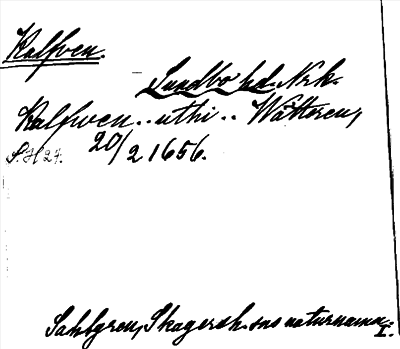 Kalfven.
Sundbo hd. Nrk.
Kalfwen .. uthi .. Wätteren,
S. H 27. 20/2 1656.
Sahlgren, Skagersh. sns naturnamn I.